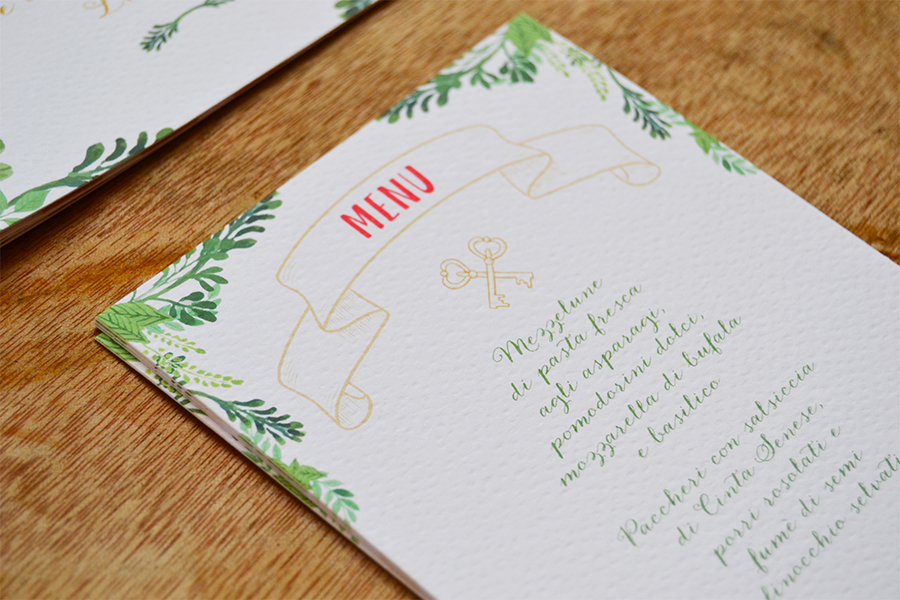 MENU
Mezzelune
di pasta fresca
agli asparagi,
pomodorini dolci,
mozzarella di bufala
e basilico
Paccheri con salsiccia
di Cinta Senese,
porri rosolati e
fumè di semi
finocchio selvati